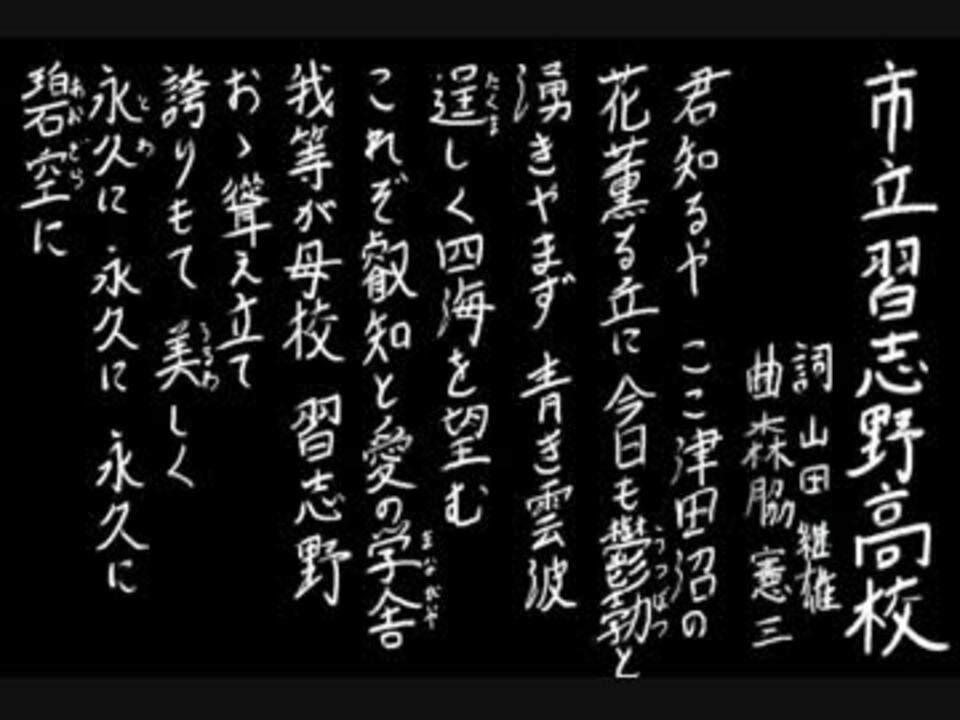 市立習志野高校
詞 山田 継雄
曲 森脇 憲三
君知るや ここ津田沼の
花薫る丘に 今日も鬱勃と
うつぼつ
湧きやまず 青き雲波
逞しく四海を望む
たくま
これぞ叡知と愛の学舎
まなびや
我等が母校 習志野
おゝ聳え立て
誇りもて 美しく
うるわ
永久に 永久に 永久に
とわ
碧空に
あおぞら